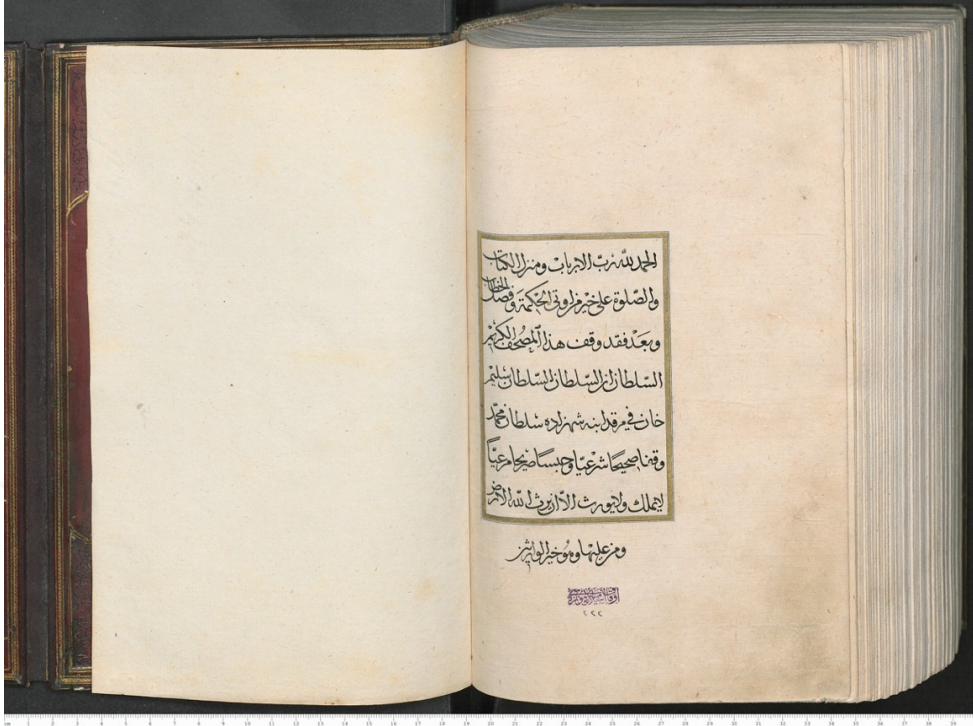 الحمد لله رب الارباب ومنزل الكتاب
والصلوة على خير من اوتى الحكمة وفصل الخطاب
وبعد فقد وقف هذا المصحف الكريم
السلطان ابن السلطان السلطان سليم
خان في مرقد ابنه شهزاده سلطان محمد
وقفا صحيحا شرعيا وحبسا صريحا مرعيا
لا يملك ولا يورث الا ان يرث الله الارض
ومن عليها وهو خير الوارثين
٢٢٢